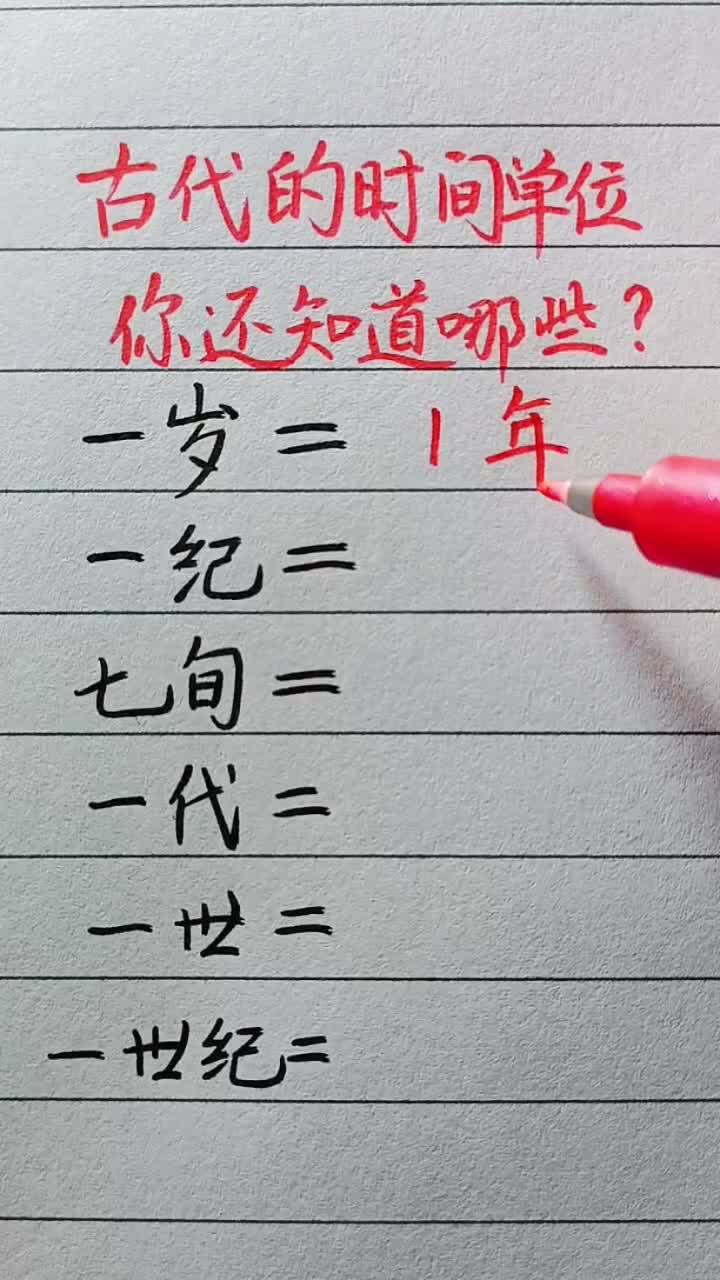 古代的时间单位
你还知道哪些?
一岁= 1年
一纪=
七旬=
一代=
一世=
一世纪=